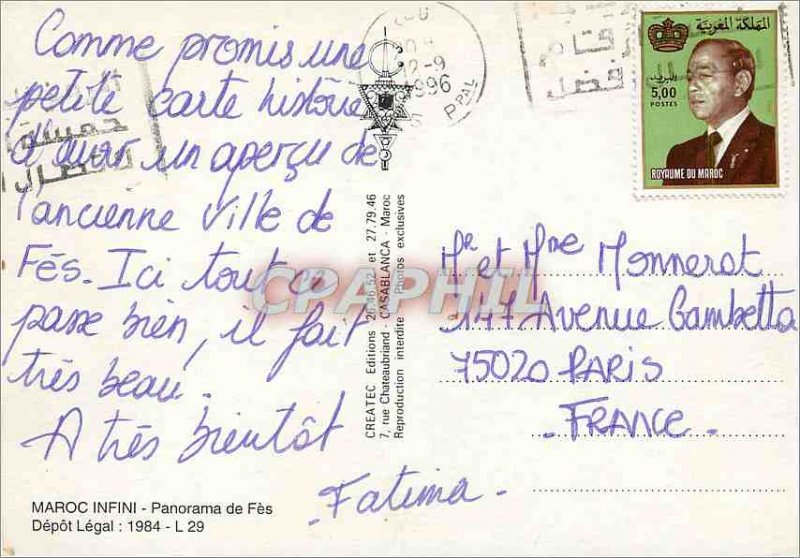 Comme promis une
petite carte histoire
d'avoir un aperçu de
l'ancienne ville de
Fès. Ici tout ce
passe bien, il fait
très beau.
A très bientôt
Fatima.
MAROC INFINI - Panorama de Fès
Dépôt Légal : 1984 - L 29
CREATEC Editions 26.46.52 et 27.79.46
7, rue Chateaubriand - CASABLANCA - Maroc
Reproduction interdite - Photos exclusives
CPAPHIL
12-9
1996
PPAL
المملكة المغربية
البريد
5,00
POSTES
ROYAUME DU MAROC
Mr et Mme Monnerot
147 Avenue Gambetta
75020 PARIS
- FRANCE -